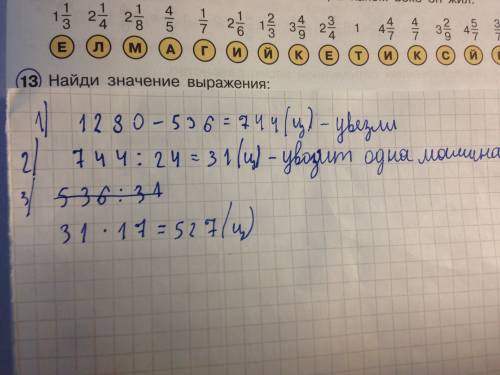 1 1/3 2 1/4 2 1/8 4/5 1/7 2 1/6 1 2/3 3 4/9 2 3/4 1 4 4/7 4/7 3 2/9 4 5/7
Е Л М А Г И Й К Е Т И К С Й
13 Найди значение выражения:
1) 1280 - 536 = 744 (ц) - увезли
2) 744 : 24 = 31 (ц) - уводит одна машина
3) 536 : 31
31 · 17 = 527 (ц)